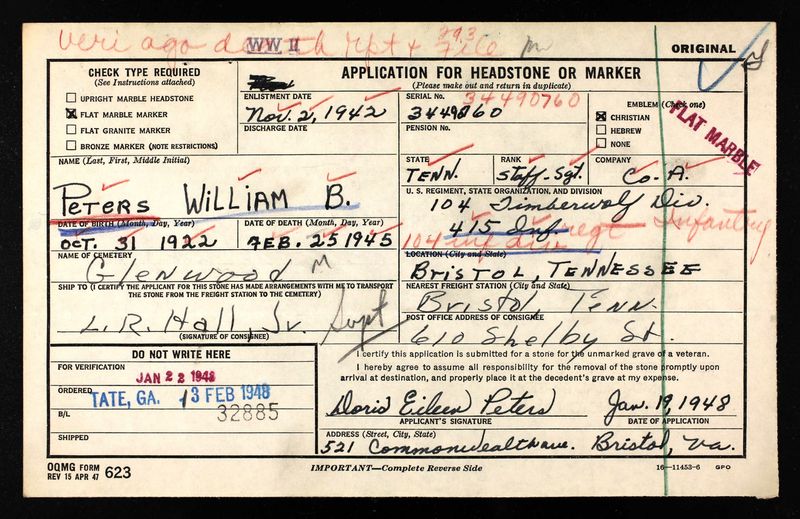 veri ago death rpt + 293 file
WW II
ORIGINAL
CHECK TYPE REQUIRED
(See Instructions attached)
UPRIGHT MARBLE HEADSTONE
FLAT MARBLE MARKER
FLAT GRANITE MARKER
BRONZE MARKER (NOTE RESTRICTIONS)
APPLICATION FOR HEADSTONE OR MARKER
(Please make out and return in duplicate)
ENLISTMENT DATE
Nov. 2, 1942
DISCHARGE DATE
SERIAL No.
34490760
3449860
PENSION No.
EMBLEM (Check one)
CHRISTIAN
HEBREW
NONE
FLAT MARBLE
NAME (Last, First, Middle Initial)
PETERS WILLIAM B.
STATE
TENN.
RANK
Staff. Sgt.
COMPANY
Co. A.
U. S. REGIMENT, STATE ORGANIZATION, AND DIVISION
104 Timberwolf Div.
415 Inf. regt Infantry
104 inf div
DATE OF BIRTH (Month, Day, Year)
OCT. 31 1922
DATE OF DEATH (Month, Day, Year)
FEB. 25 1945
NAME OF CEMETERY
Glenwood M
LOCATION (City and State)
BRISTOL, TENNESSEE
SHIP TO (I CERTIFY THE APPLICANT FOR THIS STONE HAS MADE ARRANGEMENTS WITH ME TO TRANSPORT THE STONE FROM THE FREIGHT STATION TO THE CEMETERY)
L. R. Hall, Jr. Supt
(SIGNATURE OF CONSIGNEE)
NEAREST FREIGHT STATION (City and State)
Bristol, Tenn.
POST OFFICE ADDRESS OF CONSIGNEE
610 Shelby St.
DO NOT WRITE HERE
FOR VERIFICATION
JAN 22 1948
ORDERED
TATE, GA. 13 FEB 1948
B/L
32885
SHIPPED
I certify this application is submitted for a stone for the unmarked grave of a veteran.
I hereby agree to assume all responsibility for the removal of the stone promptly upon
arrival at destination, and properly place it at the decedent's grave at my expense.
Doris Eileen Peters Jan. 19, 1948
APPLICANT'S SIGNATURE DATE OF APPLICATION
ADDRESS (Street, City, State)
521 Commonwealth ave. Bristol, Va.
OQMG FORM
REV 15 APR 47 623
IMPORTANT—Complete Reverse Side
16—11453-6 GPO